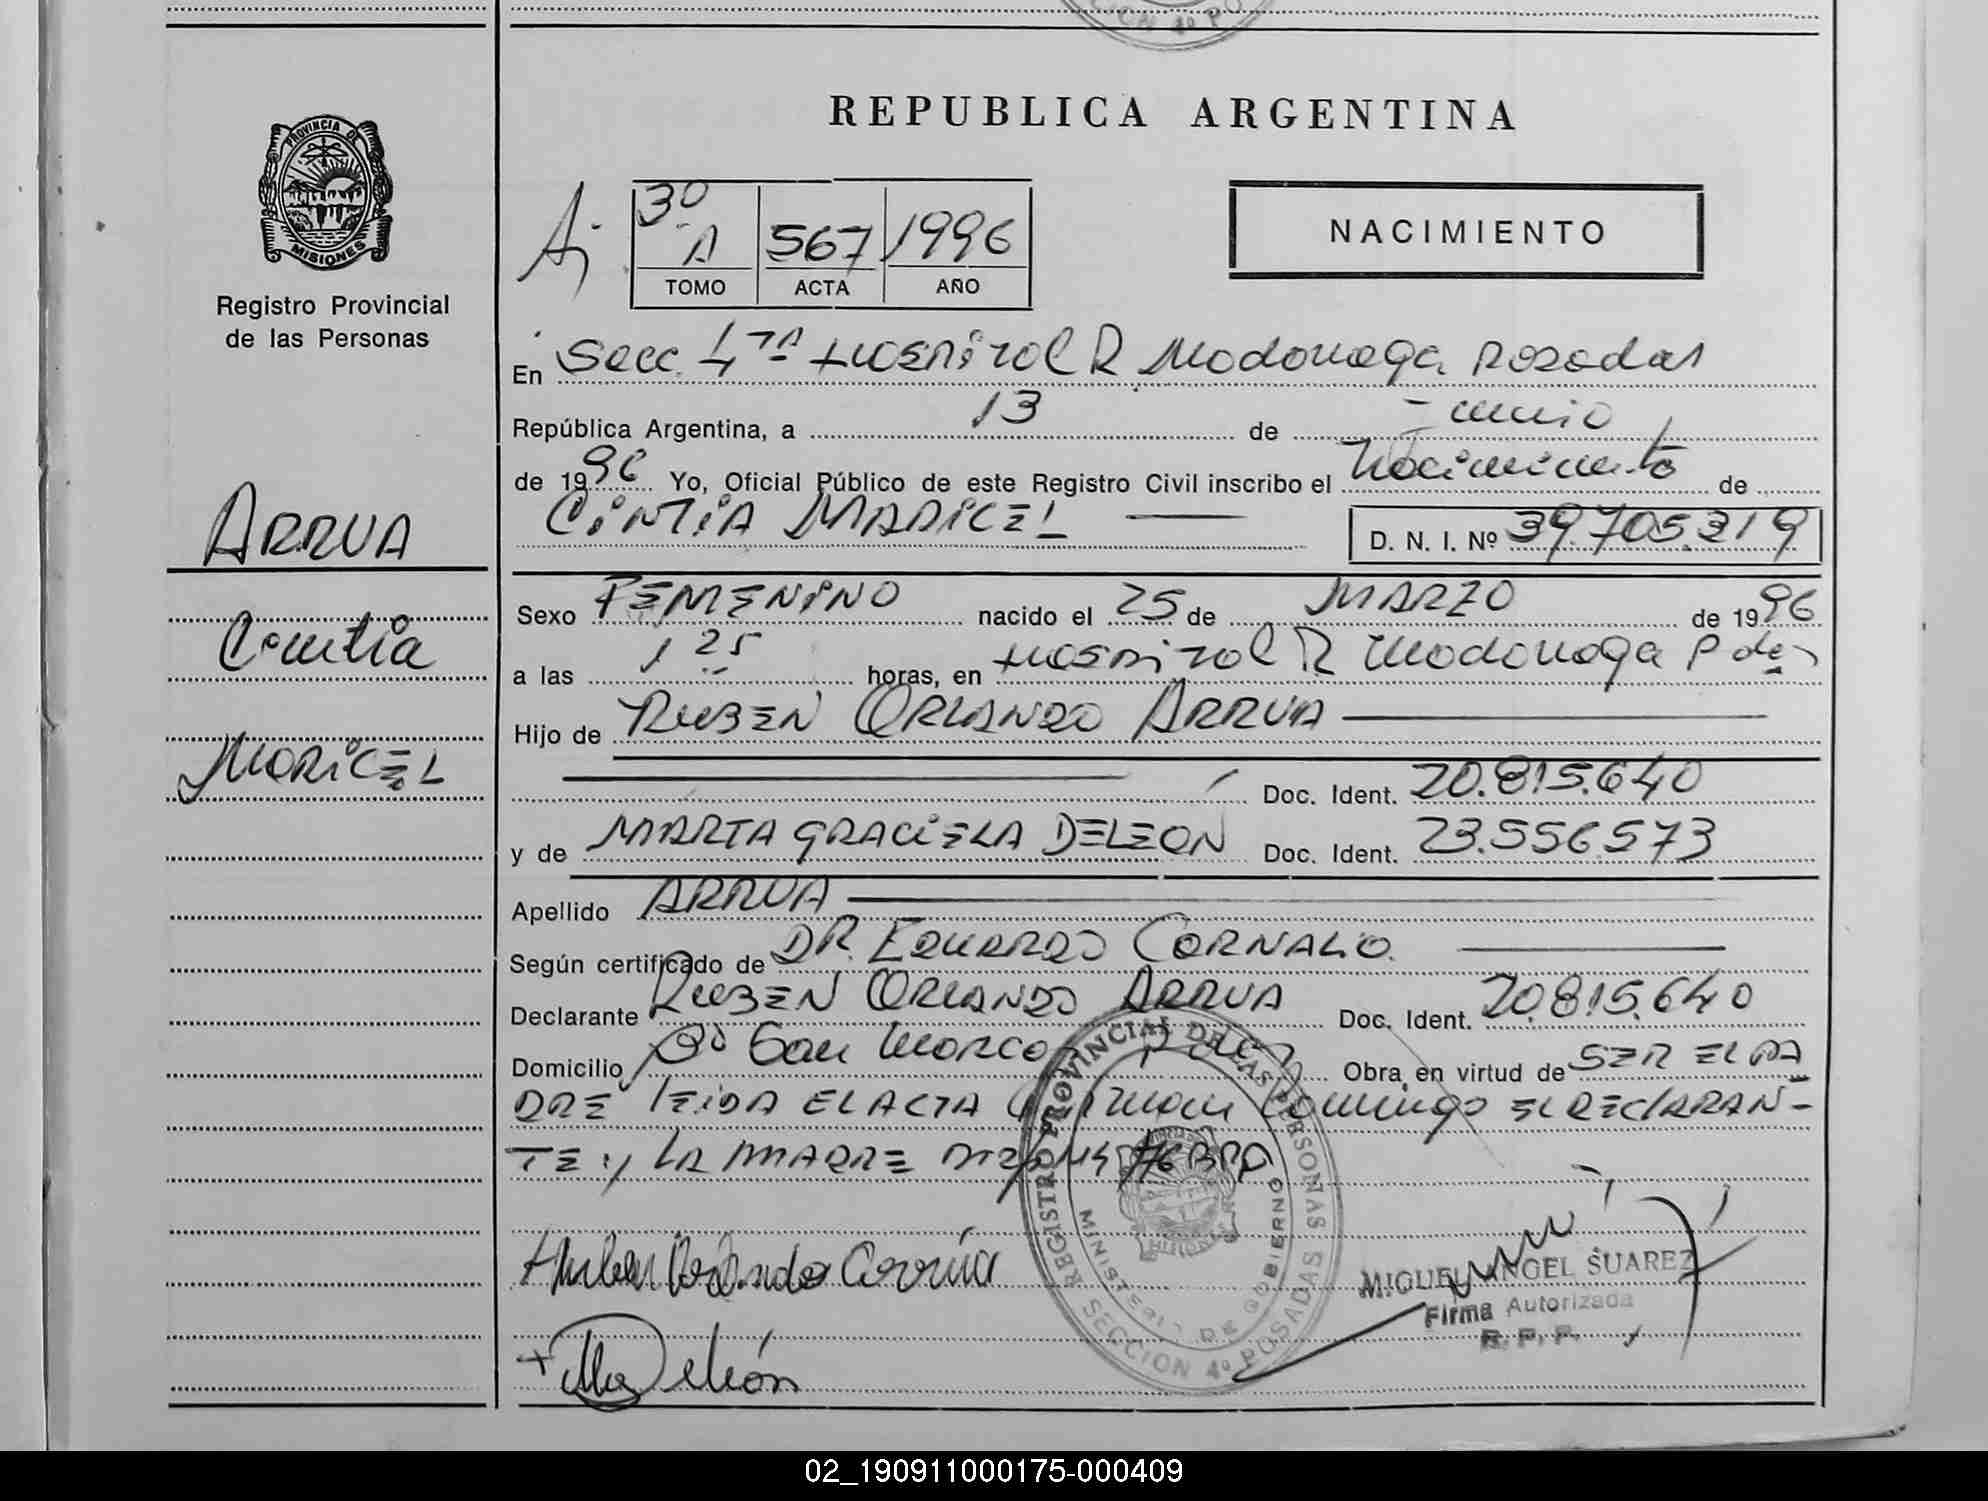 CION 4º PO
REPUBLICA ARGENTINA
PROVINCIA DE
MISIONES
Registro Provincial
de las Personas
3º
A 567 1996
TOMO ACTA AÑO
NACIMIENTO
En Secc. 4TA Hospital R Madariaga Posadas
República Argentina, a 13 de Junio
de 1996 Yo, Oficial Público de este Registro Civil inscribo el Nacimiento de
CINTIA MARICEL D. N. I. Nº 39.705.319
ARRUA
Sexo FEMENINO nacido el 25 de MARZO de 1996
Cintia
a las 1 25 horas, en Hospital R Madariaga Pdas
Hijo de RUBEN ORLANDO ARRUA
MARICEL
Doc. Ident. 20.815.640
y de MARTA GRACIELA DELEON Doc. Ident. 23.556.573
Apellido ARRUA
Según certificado de DR. EDUARDO CORNALO.
Declarante RUBEN ORLANDO ARRUA Doc. Ident. 20.815.640
Domicilio Bº San Marco Pdas Obra, en virtud de SER EL PA
DRE LEIDA EL ACTA firman conmigo EL DECLARAN-
TE y LA MADRE
REGISTRO PROVINCIAL DE LAS PERSONAS
MINISTERIO DE GOBIERNO
MISIONES
SECCION 4º POSADAS
Ruben Orlando Arrúa
MIGUEL ANGEL SUAREZ
Firma Autorizada
R. P. P.
Deleón
02_190911000175-000409